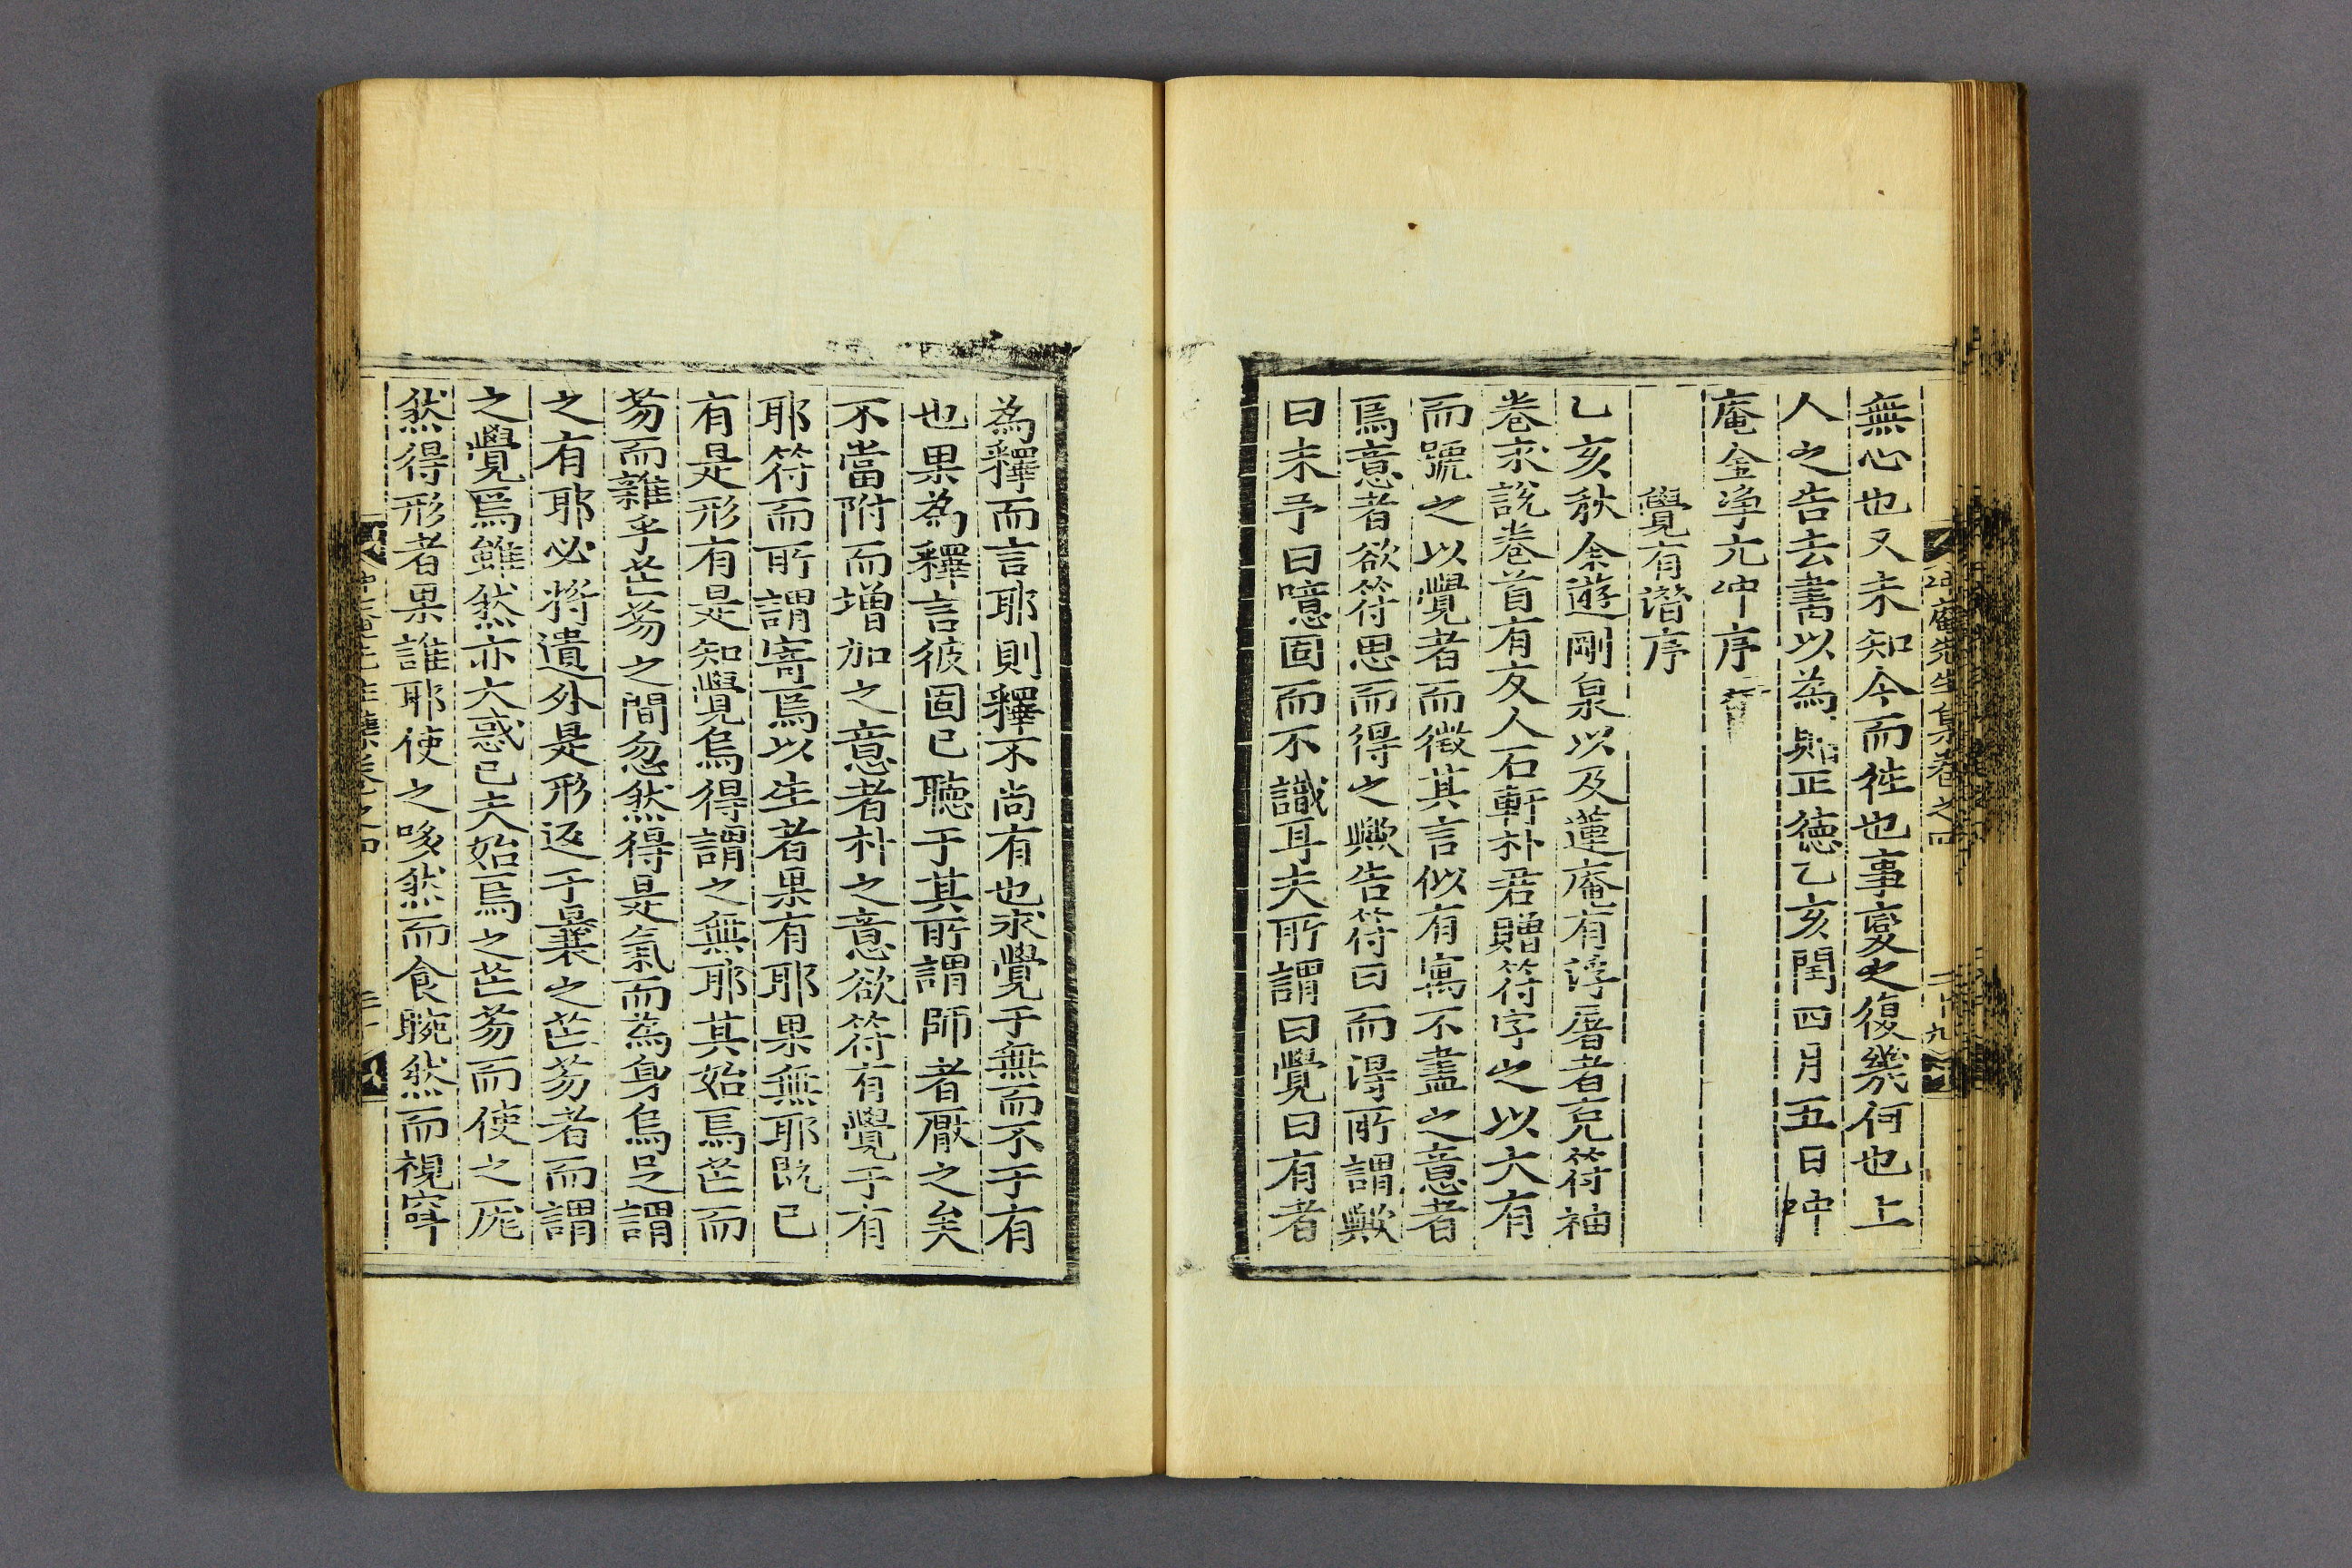 冲庵先生集卷之四
二十九
無心也又未知今而徃也事變之復幾何也上
人之告去書以為贐正德乙亥閏四月五日冲
庵金淨元冲序
覺有潛序
乙亥秋余遊剛泉以及蓮庵有浮屠者克符袖
卷求說卷首有友人石軒朴君贈符字之以大有
而號之以覺者而徵其言似有寓不盡之意者
焉意者欲符思而得之歟告符曰而得所謂歟
曰未予曰噫固而不識耳夫所謂曰覺曰有者
為釋而言耶則釋不尚有也求覺于無而不于有
也果為釋言彼固已聽于其所謂師者厭之矣
不當附而增加之意者朴之意欲符有覺于有
耶符而所謂寄焉以生者果有耶果無耶既已
有是形有是知覺烏得謂之無耶其始焉芒而
芴而雜乎芒芴之間忽然得是氣而為身烏足謂
之有耶必將遺外是形返于曩之芒芴者而謂
之覺焉雖然亦大惑已夫始焉之芒芴而使之厖
然得形者果誰耶使之哆然而食睕然而視窂
冲庵先生集卷之四
三十